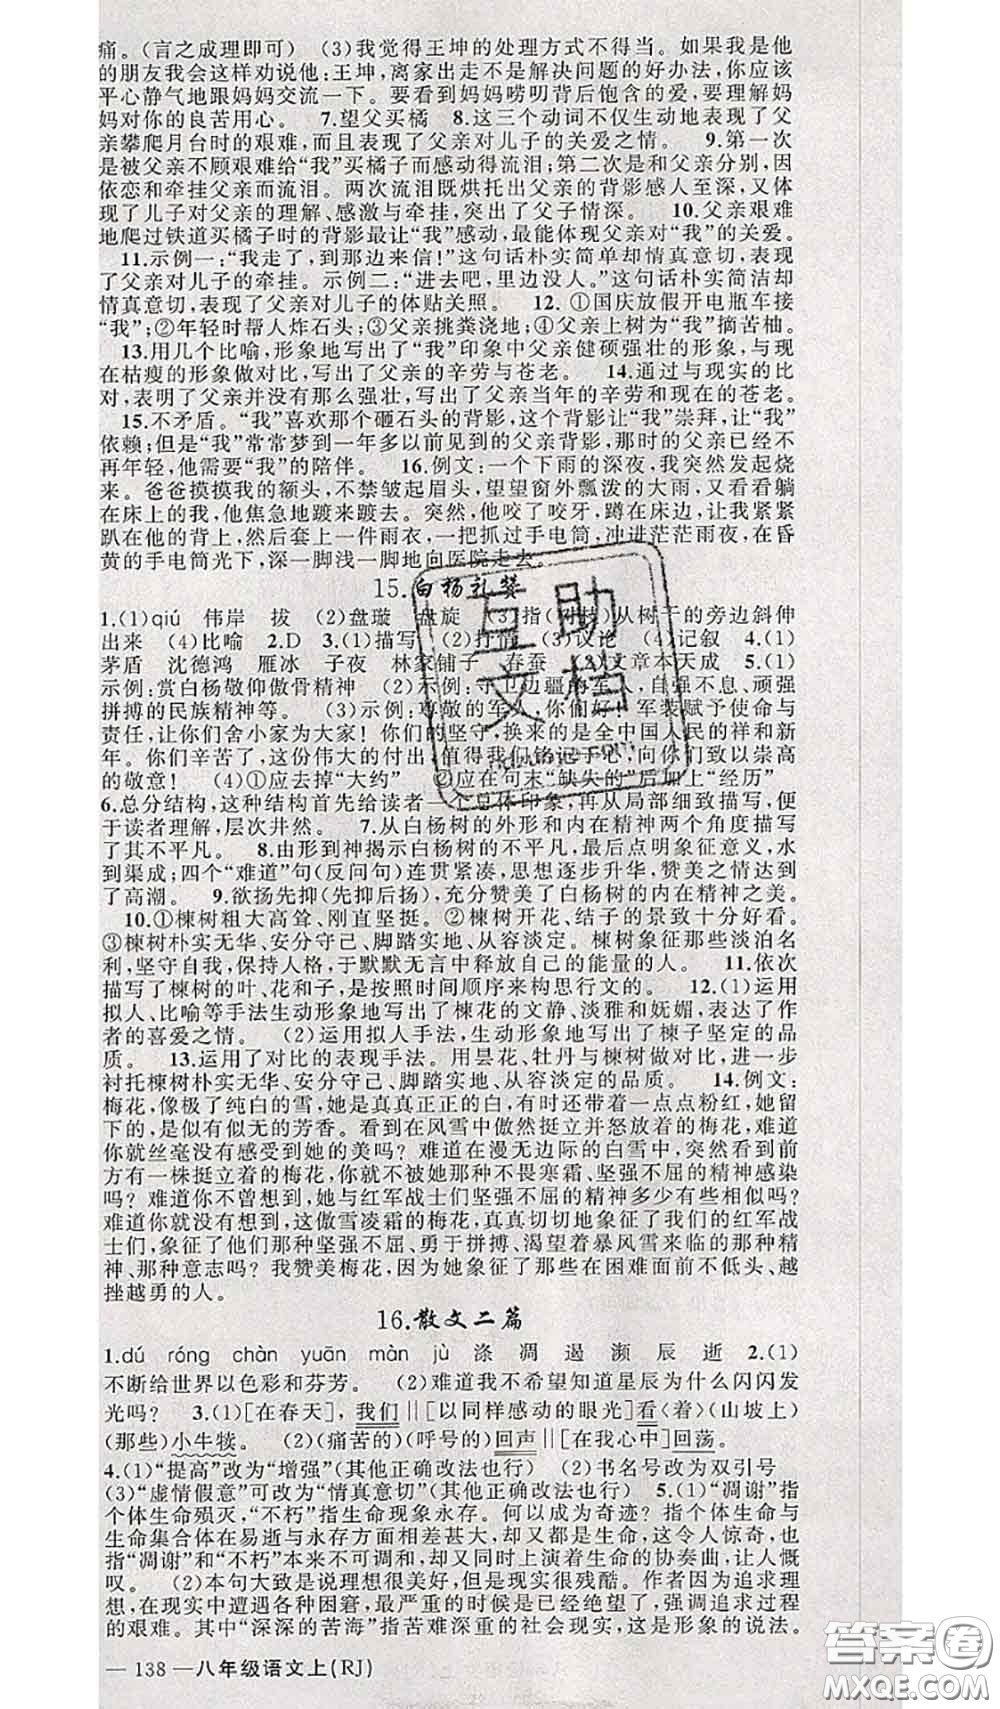 痛。(言之成理即可) (3)我觉得王坤的处理方式不得当。如果我是他
的朋友我会这样劝说他:王坤,离家出走不是解决问题的好办法,你应该
平心静气地跟妈妈交流一下。要看到妈妈唠叨背后饱含的爱,要理解妈
妈对你的良苦用心。 7.望父买橘 8.这三个动词不仅生动地表现了父
亲攀爬月台时的艰难,而且表现了父亲对儿子的关爱之情。 9.第一次
是被父亲不顾艰难给“我”买橘子而感动得流泪;第二次是和父亲分别,因
依恋和牵挂父亲而流泪。两次流泪既烘托出父亲的背影感人至深,又体
现了儿子对父亲的理解、感激与牵挂,突出了父子情深。 10.父亲艰难
地爬过铁道买橘子时的背影最让“我”感动,最能体现父亲对“我”的关爱。
11.示例一:“我走了,到那边来信!”这句话朴实简单却情真意切,表现
了父亲对儿子的牵挂。示例二:“进去吧,里边没人。”这句话朴实简洁却
情真意切,表现了父亲对儿子的体贴关照。 12.①国庆放假开电瓶车接
“我”;②年轻时帮人炸石头;③父亲挑粪浇地;④父亲上树为“我”摘苦柚。
13.用几个比喻,形象地写出了“我”印象中父亲健硕强壮的形象,与现
在枯瘦的形象做对比,写出了父亲的辛劳与苍老。 14.通过与现实的比
对,表明了父亲并没有那么强壮,写出了父亲当年的辛劳和现在的苍老。
15.不矛盾。“我”喜欢那个砸石头的背影,这个背影让“我”崇拜,让“我”
依赖;但是“我”常常梦到一年多以前见到的父亲背影,那时的父亲已经不
再年轻,他需要“我”的陪伴。 16.例文:一个下雨的深夜,我突然发起烧
来。爸爸摸摸我的额头,不禁皱起眉头,望望窗外瓢泼的大雨,又看看躺
在床上的我,他焦急地踱来踱去。突然,他咬了咬牙,蹲在床边,让我紧紧
趴在他的背上,然后套上一件雨衣,一把抓过手电筒,冲进茫茫雨夜,在昏
黄的手电筒光下,深一脚浅一脚地向医院走去。
15.白杨礼赞
1.(1)qiú 伟岸 拔 (2)盘璇 盘旋 (3)指(树枝)从树干的旁边斜伸
出来 (4)比喻 2.D 3.(1)描写 (2)抒情 (3)议论 (4)记叙 4.(1)
茅盾 沈德鸿 雁冰 子夜 林家铺子 春蚕 (2)文章本天成 5.(1)
示例:赏白杨敬仰傲骨精神 (2)示例:守卫边疆的军人,自强不息、顽强
拼搏的民族精神等。 (3)示例:尊敬的军人,你们好!军装赋予使命与
责任,让你们舍小家为大家!你们的坚守,换来的是全中国人民的祥和新
年。你们辛苦了,这份伟大的付出,值得我们铭记于心,向你们致以崇高
的敬意! (4)①应去掉“大约” ②应在句末“缺失的”后加上“经历”
6.总分结构,这种结构首先给读者一个总体印象,再从局部细致描写,便
于读者理解,层次井然。 7.从白杨树的外形和内在精神两个角度描写
了其不平凡。 8.由形到神揭示白杨树的不平凡,最后点明象征意义,水
到渠成;四个“难道”句(反问句)连贯紧凑,思想逐步升华,赞美之情达到
了高潮。 9.欲扬先抑(先抑后扬),充分赞美了白杨树的内在精神之美。
10.①楝树粗大高耸、刚直坚挺。②楝树开花、结子的景致十分好看。
③楝树朴实无华、安分守己、脚踏实地、从容淡定。楝树象征那些淡泊名
利,坚守自我,保持人格,于默默无言中释放自己的能量的人。 11.依次
描写了楝树的叶、花和子,是按照时间顺序来构思行文的。 12.(1)运用
拟人、比喻等手法生动形象地写出了楝花的文静、淡雅和妩媚,表达了作
者的喜爱之情。 (2)运用拟人手法,生动形象地写出了楝子坚定的品
质。 13.运用了对比的表现手法。用昙花、牡丹与楝树做对比,进一步
衬托楝树朴实无华、安分守己、脚踏实地、从容淡定的品质。 14.例文:
梅花,像极了纯白的雪,她是真真正正的白,有时还带着一点点粉红,她留
下的,是似有似无的芳香。看到在风雪中傲然挺立并怒放着的梅花,难道
你就丝毫没有感受到她的美吗?难道在漫无边际的白雪中,突然看到前
方有一株挺立着的梅花,你就不被她那种不畏寒霜、坚强不屈的精神感染
吗?难道你不曾想到,她与红军战士们坚强不屈的精神多少有些相似吗?
难道你就没有想到,这傲雪凌霜的梅花,真真切切地象征了我们的红军战
士们,象征了他们那种坚强不屈、勇于拼搏、渴望着暴风雪来临的那种精
神、那种意志吗?我赞美梅花,因为她象征了那些在困难面前不低头、越
挫越勇的人。
16.散文二篇
1.dú róng chàn yuān màn jù 涤 凋 遏 濒 辰 逝 2.(1)
不断给世界以色彩和芬芳。 (2)难道我不希望知道星辰为什么闪闪发
光吗? 3.(1)[在春天],我们‖[以同样感动的眼光]看〈着〉(山坡上)
(那些)小牛犊。 (2)(痛苦的)(呼号的)回声‖[在我心中]回荡。
4.(1)“提高”改为“增强”(其他正确改法也行) (2)书名号改为双引号
(3)“虚情假意”可改为“情真意切”(其他正确改法也行) 5.(1)“凋谢”指
个体生命殒灭,“不朽”指生命现象永存。何以成为奇迹?指个体生命与
生命集合体在易逝与永存方面相差甚大,却又都是生命,这令人惊奇,也
指“凋谢”和“不朽”本来不可调和,却又同时上演着生命的协奏曲,让人慨
叹。 (2)本句大致是说理想很美好,但是现实很残酷。作者因为追求理
想,在现实中遭遇各种困窘,最严重的时候是已经绝望了,强调追求过程
的艰难。其中“深深的苦海”指苦难深重的社会现实,这是形象的说法。
— 138 —八年级语文上(RJ)
互助
文档
答案圈
MXQE.COM